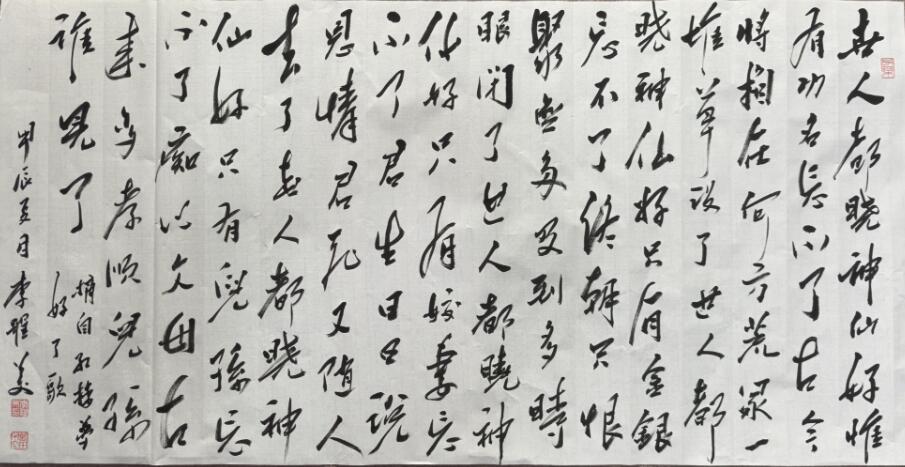 世人都晓神仙好惟
有功名忘不了古今
将相在何方荒冢一
堆草没了世人都
晓神仙好只有金銀
忘不了终朝只恨
聚無多及到多時
眼闭了世人都曉神
仙好只有姣妻忘
不了君生日日说
恩情君死又随人
去了世人都晓神
仙好只有兒孫忘
不了痴心父母古
来多孝顺兒孫
谁見了
摘自红楼夢
好了歌
甲辰五月 李